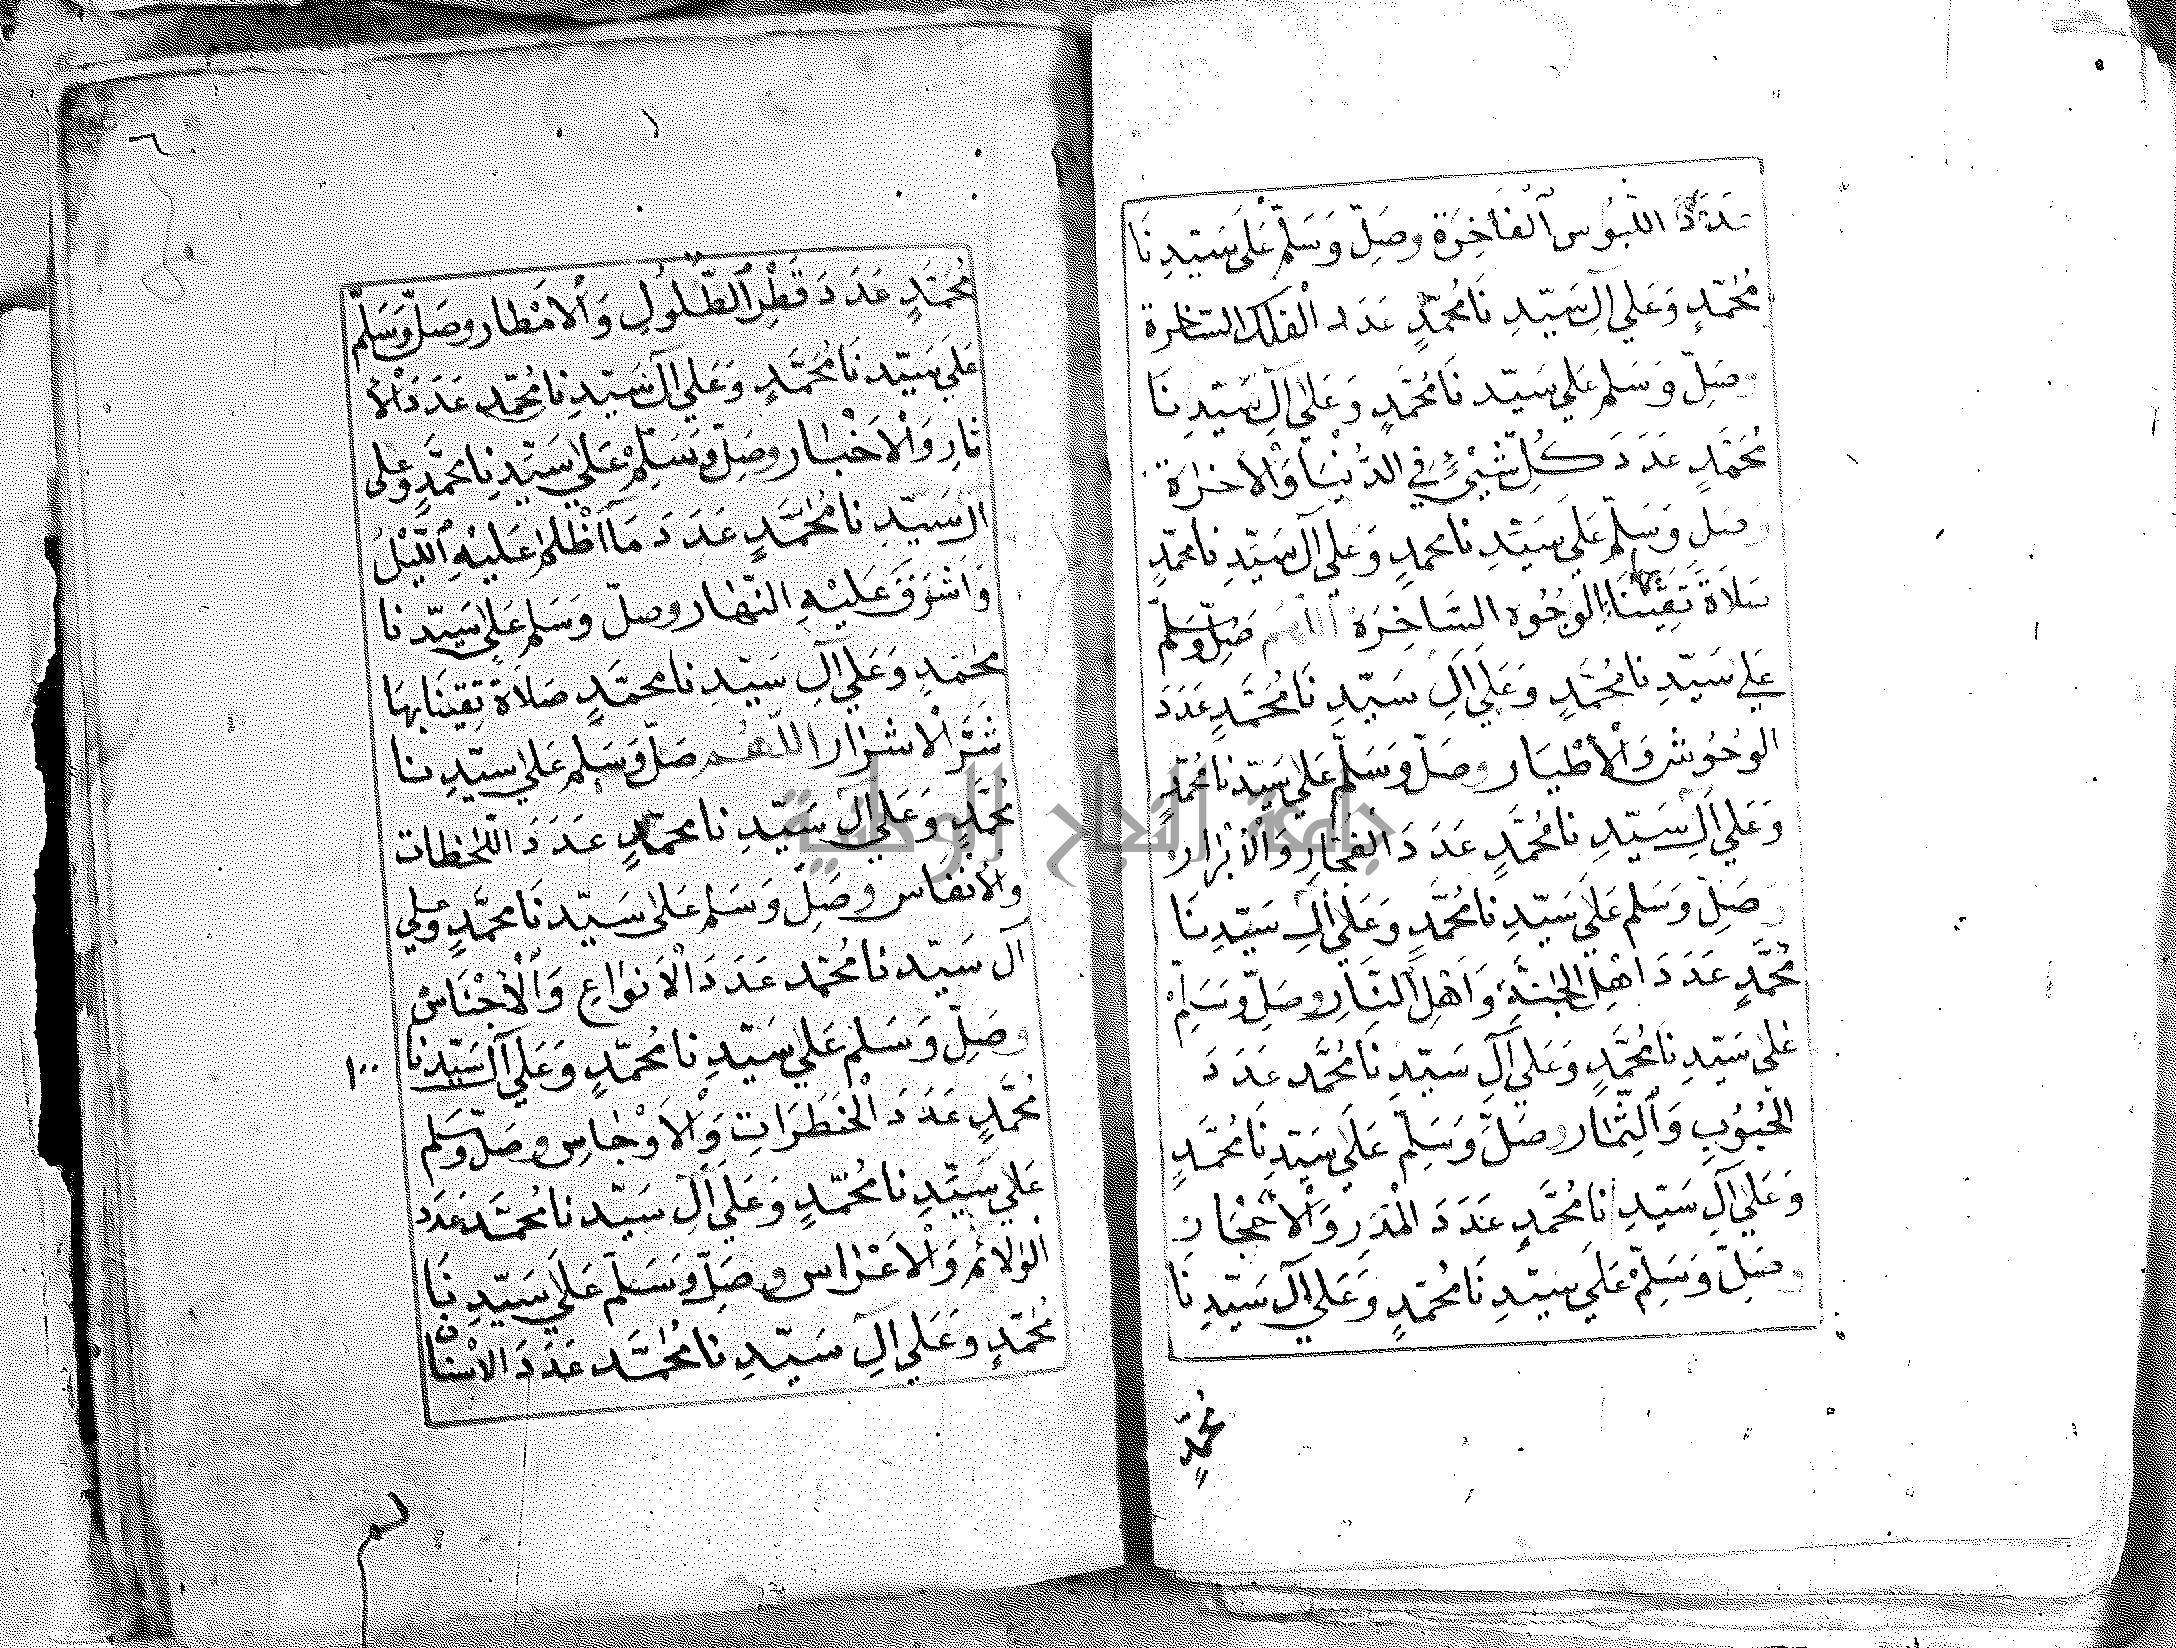 عَدَدَ اللُّبُوسِ ٱلْفَاخِرَة وصَلِّ وَسَلِّمْ عَلَى سَيِّدِنَا
مُحَمَّدٍ وَعَلي آلِ سَيِّدِنَا مُحَمَّدٍ عَدَدَ الْفلك السّاخرة
وصَلِّ وَسَلم عَلي سَيّدِنَا مُحَمَّدٍ وَعَلي آلِ سَيّدِنَا
مُحَمَّدٍ عَدَدَ كُلِّ شَيْئٍ في الدُّنْيَا وَالْاَخرَة
وصَلِّ وَسَلِّم عَلَي سَيّدِنا محمدٍ وَعَلي آل سَيّدِنا محمّدٍ
صَلَاةً تَقِينَا الوُجُوه السَّاخِرَة اللهم صَلِّ وَسَلِّم
عَلي سَيّدِنا مُحَمَّدٍ وَعَلَي آلِ سَيّدِ نَا مُحَمَّدٍ عَدَدَ
الوُحُوش وَالْأَطْيَار وصَلّ وَسَلِّم عَلَي سَيّدِنا مُحَمَّدٍ
وَعَلي الِ سَيّدِ نا مُحَمَّدٍ عَدَدَ الفجّارِ وَالْأَبْرَار
وصَلِّ وَسَلم عَلَي سَيّدِنا مُحَمَّدٍ وَعَلَي آلِ سَيّدِنَا
مُحَمَّدٍ عَدَدَ اهْلِ الْجَنَّةِ وَاَهْلِ النَّارِ وصَلّ وَسَلِّمْ
عَلى سَيّدِنَا مُحَمَّدٍ وَعَلَي آلِ سَيّدِنَا مُحَمَّد عَدَدَ
الْحُبُوبِ وَالثّمار وصَلِّ وَسَلِّم عَلَى سَيّدِنَا مُحَمَّدٍ
وَعَلي آلِ سَيّدِ نا مُحَمَّدٍ عَدَدَ الْمَدَرِ وَالْأَحْجَارِ
وصَلّ وَسَلِّمْ عَلَي سَيّدِنَا مُحَمَّدٍ وَعَلي آلِ سَيّدِنَا
مُحَمَّدٍ
٦
مُحَمَّدٍ عَدَدَ قَطْرِ الطُّلُولِ وَالْاَمْطار وصَلّ وَسَلِّم
عَلَي سَيّدِنَا مُحَمَّدٍ وَعَلي آلِ سَيّدِنا مُحَمَّدٍ عَدَدَ الْأ
ثارِ وَالْاَخْبَار وصَلّ وَسَلِّمْ عَلي سَيّدِنا محمّدٍ وعلى
ال سَيّدِ نا مُحَمَّدٍ عَدَدَ مَا اَظْلمَ عَلَيْهِ اللَّيْلُ
وَاَشْرَقَ عَلَيْهِ النّهَار وصلّ وَسَلم عَلي سَيّدِنَا
محَمّدٍ وَعَلي آلِ سَيّدِنا محمّدٍ صَلاةً تَقِينَا بِهَا
شَرَّ الْاشرَار اللّهُم صَلّ وَسَلِّم عَلى سيّدِنا
مُحَمَّدٍ وَعَلَي آلِ سَيّدِ نا محمّدٍ عَدَدَ اللّحظات
وَالْأَنْفَاس وصَلّ وَسَلم عَلى سَيّدِنَا محمّدٍ وعلي
آل سَيّدِنا مُحَمّد عَدَدَ الْاَنوَاعِ وَالْأَجْنَاسِ
وصَلّ وَسَلم عَلي سَيّدِنا مُحمّدٍ وَعَلي آل سَيّدِنا
١٠٠
مُحَمَّدٍ عَدَدَ الْخَطَرَاتِ وَالْأَوْجَاسِ وصَلّ وَسَلم
عَلي سَيّدِنا مُحَمَّدٍ وَعَلَي آلِ سَيّدِنا مُحَمَّد عَدَدَ
الوَلائم وَالْاَعْرَاس وصَلّ وَسَلّم عَلَي سَيّدِنَا
مُحَمَّدٍ وَعَلي آلِ سَيّدِ نا مُحَمَّد عَدَدَ الاسْنان
جامعة النجاح الوطنية